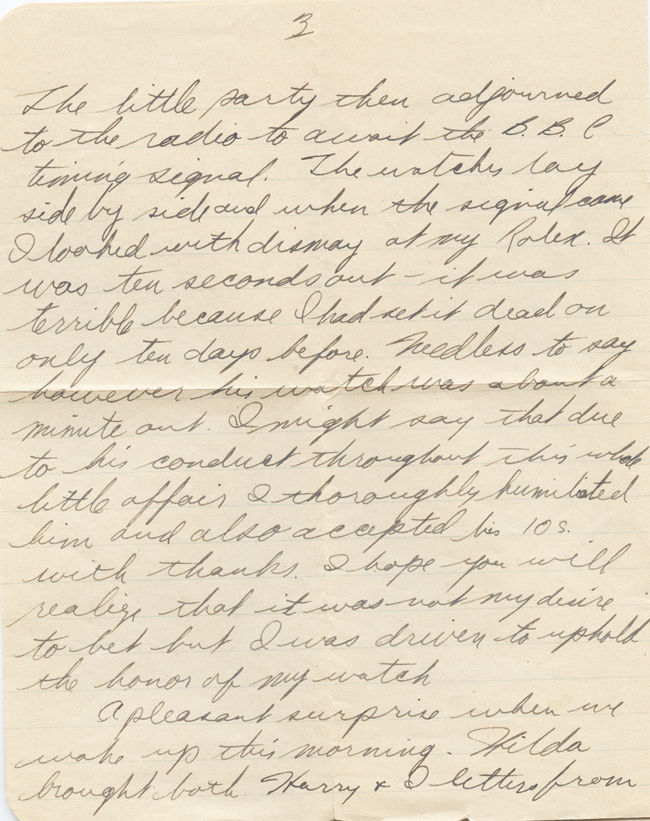 3
The little party then adjourned
to the radio to await the B.B.C
timing signal. The watches lay
side by side and when the signal came
I looked with dismay at my Rolex. It
was ten seconds out - it was
terrible because I had set it dead on
only ten days before. Needless to say
however his watch was about a
minute out. I might say that due
to his conduct throughout this whole
little affair I thoroughly humiliated
him and also accepted his 10s.
with thanks. I hope you will
realize that it was not my desire
to bet but I was driven to uphold
the honor of my watch
A pleasant surprise when we
woke up this morning. Hilda
brought both Harry & I letters from